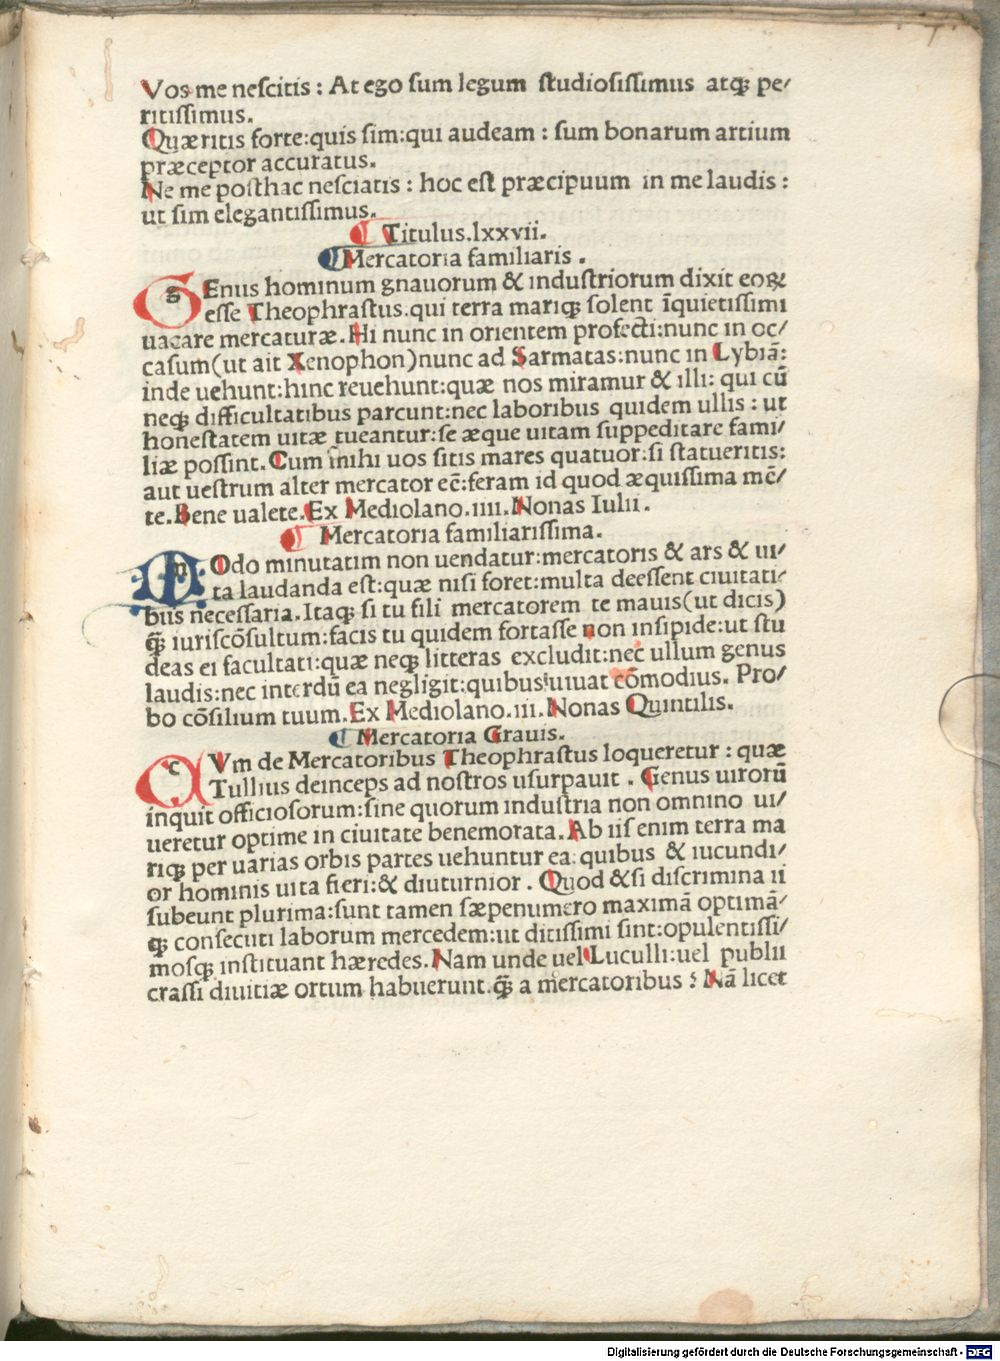 Vos me nescitis : At ego sum legum studiosissimus atqꝫ pe/
ritissimus.
Quæritis forte:quis sim:qui audeam : sum bonarum artium
præceptor accuratus.
Ne me posthac nesciatis : hoc est præcipuum in me laudis :
ut sim elegantissimus.
Titulus.lxxvii.
Mercatoria familiaris .
GEnus hominum gnauorum & industriorum dixit eoꝝ
esse Theophrastus.qui terra mariqꝫ solent īquietissimi
uacare mercaturæ.Hi nunc in orientem profecti:nunc in oc/
casum(ut ait Xenophon)nunc ad Sarmatas:nunc in Lybiā:
inde uehunt:hinc reuehunt:quæ nos miramur & illi: qui cū
neqꝫ difficultatibus parcunt:nec laboribus quidem ullis : ut
honestatem uitæ tueantur:se æque uitam suppeditare fami/
liæ possint.Cum mihi uos sitis mares quatuor:si statueritis:
aut uestrum alter mercator eē:feram id quod æquissima mē/
te.Bene ualete.Ex Mediolano.iiii.Nonas Iulii .
Mercatoria familiarissima.
mOdo minutatim non uendatur:mercatoris & ars & ui/
ta laudanda est:quæ nisi foret:multa deessent ciuitati/
bus necessaria.Itaqꝫ si tu fili mercatorem te mauis(ut dicis)
q̄ꝫ iuriscōsultum:facis tu quidem fortasse non insipide:ut stu
deas ei facultati:quæ neqꝫ litteras excludit:nec ullum genus
laudis:nec interdū ea negligit:quibus uiuat cōmodius. Pro/
bo cōsilium tuum.Ex Mediolano.iii.Nonas Quintilis.
Mercatoria Grauis.
cVm de Mercatoribus Theophrastus loqueretur : quæ
Tullius deinceps ad nostros usurpauit . Genus uirorū
inquit officiosorum:sine quorum industria non omnino ui/
ueretur optime in ciuitate benemorata.Ab iis enim terra ma
riqꝫ per uarias orbis partes uehuntur ea: quibus & iucundi/
or hominis uita fieri:& diuturnior . Quod &si discrimina ii
subeunt plurima:sunt tamen sæpenumero maximā optimā/
qꝫ consecuti laborum mercedem:ut ditissimi sint:opulentissi/
mosqꝫ instituant hæredes.Nam unde uel Luculli:uel publii
crassi diuitiæ ortum habuerunt.q̄ꝫ a mercatoribus ? Nā licet
Digitalisierung gefördert durch die Deutsche Forschungsgemeinschaft - DFG